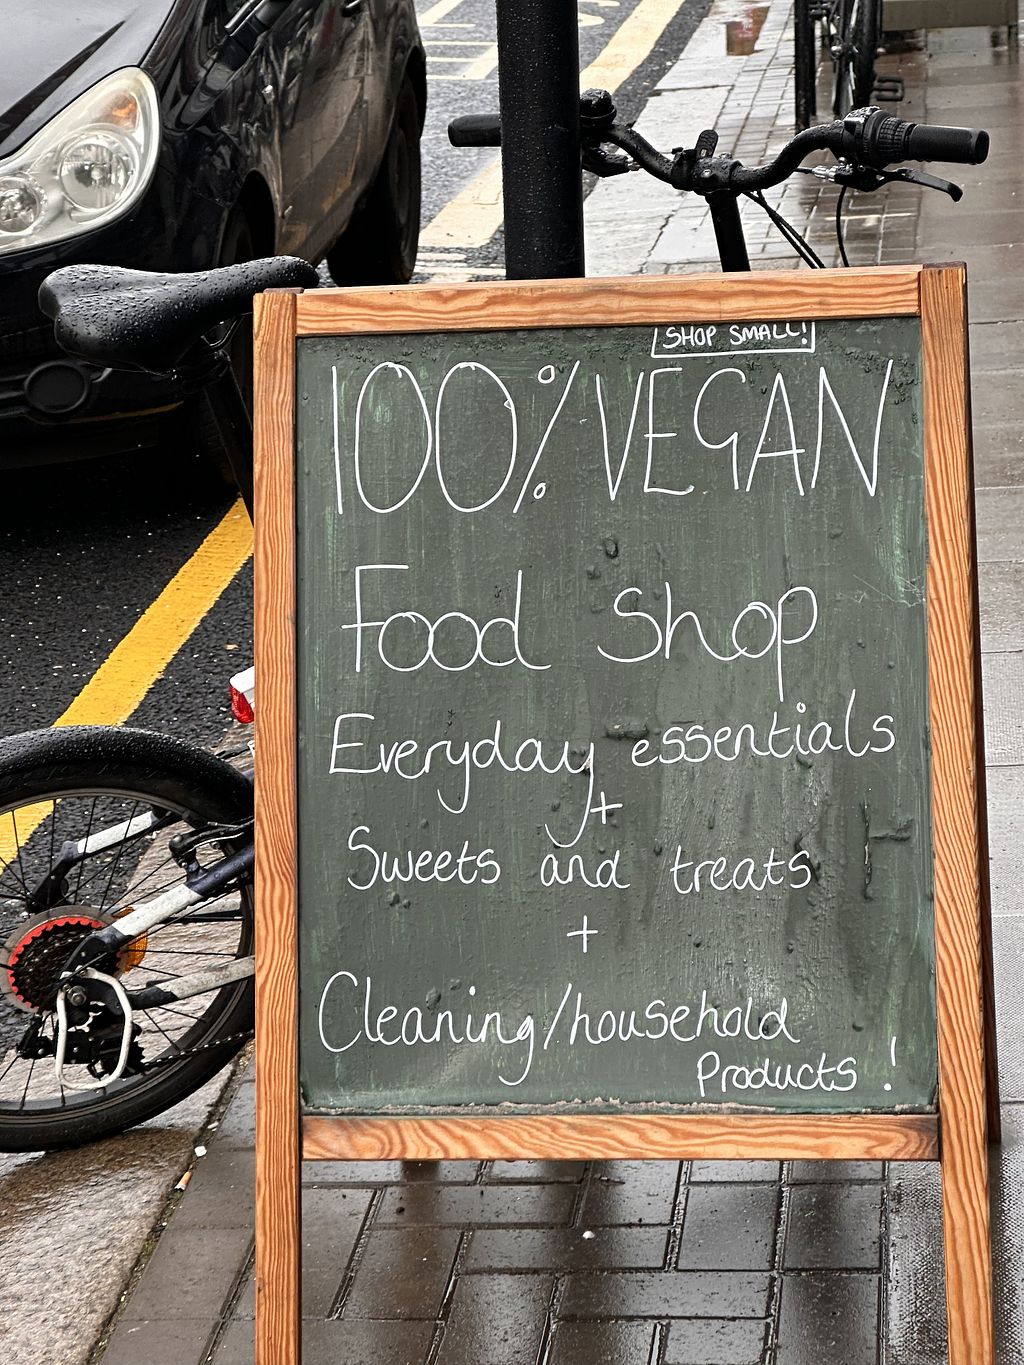 SHOP SMALL!
100% VEGAN
Food Shop
Everyday essentials
+
Sweets and treats
+
Cleaning/household
Products !